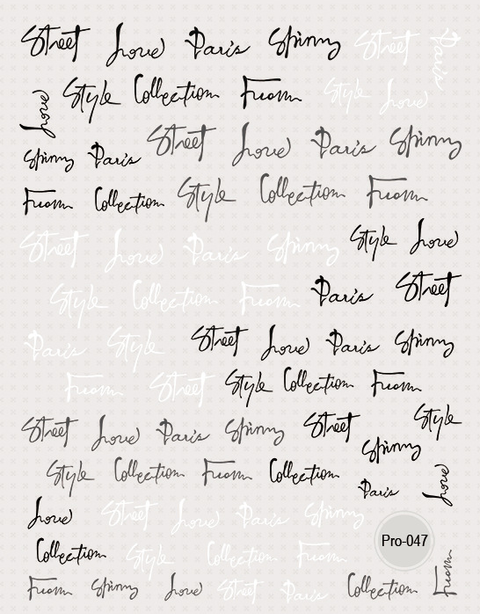 Street Love Paris Spinny Street Paris
Love Style Collection Fuom Style Love
Spinny Paris Street Love Paris Spinny
Fuom Collection Style Collection Fuom
Street Love Paris Spinny Style Love
Style Collection Fuom Paris Street
Paris Style Street Love Paris Spinny
Fuom Street Style Collection Fuom
Street Love Paris Spinny Street Style
Spinny
Style Collection Fuom Collection Paris Love
Love Street Love Paris Spinny
Pro-047
Collection Style Collection Fuom
Fuom Spinny Love Street Paris Collection Fuom